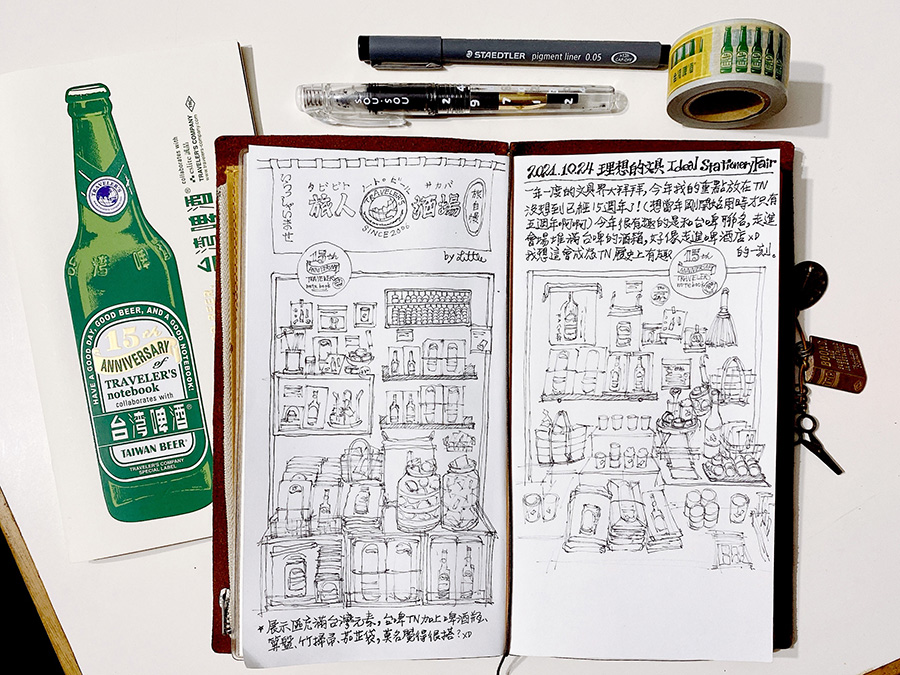 STAEDTLER pigment liner 0.05
台湾啤酒
collaborates with
eslite 誠品
TRAVELER'S COMPANY
www.travelers-company.com
台湾啤酒
TRAVELER'S
HAVE A GOOD DAY, GOOD BEER, AND A GOOD NOTEBOOK
15th
ANNIVERSARY
of
TRAVELER'S
notebook
collaborates with
台湾啤酒
TAIWAN BEER
TRAVELER'S COMPANY
SPECIAL LABEL
いらっしゃいませ
タビビト ノートのビール サカバ
旅人 TRAVELER'S 酒場
SINCE 2006
by Little
15th
ANNIVERSARY
TRAVELER
notebook
＊展示區充滿台灣元素，台啤TN加上啤酒瓶、
算盤、竹掃帚、茄芷袋，莫名覺得很搭？XD
2021.10.24 理想的文具 Ideal Stationery Fair
一年一度的文具界大拜拜，今年我的重點放在TN
沒想到已經15週年了!(想當年剛開始用時才只有
五週年啊啊)今年很有趣的是和台啤聯名，走進
會場堆滿台啤的酒箱，好像走進啤酒店XD
我想這會成為TN歷史上有趣的一刻。
15th
ANNIVERSARY
TRAVELER
notebook